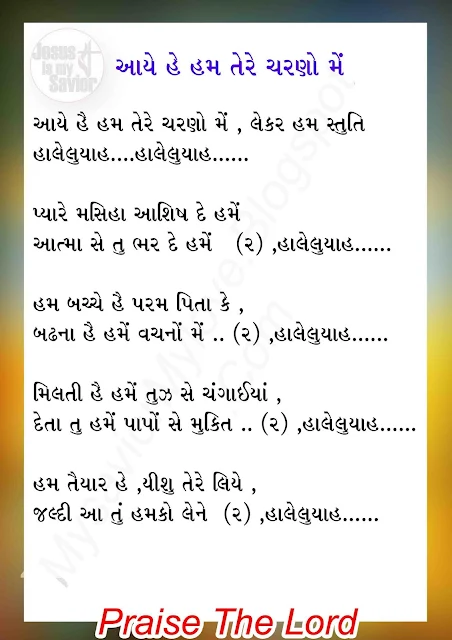 Jesus
is my
Savior
આયે હે હમ તેરે ચરણો મેં
આયે હૈ હમ તેરે ચરણો મેં , લેકર હમ સ્તુતિ
હાલેલુયાહ....હાલેલુયાહ......
પ્યારે મસિહા આશિષ દે હમેં
આત્મા સે તુ ભર દે હમેં (૨) ,હાલેલુયાહ......
હમ બચ્ચે હૈ પરમ પિતા કે ,
બઢના હૈ હમેં વચનોં મેં .. (૨) ,હાલેલુયાહ......
મિલતી હૈ હમેં તુઝ સે ચંગાઈયાં ,
દેતા તુ હમેં પાપોં સે મુકિત .. (૨) ,હાલેલુયાહ......
હમ તૈયાર હે ,યીશુ તેરે લિયે ,
જલ્દી આ તું હમકો લેને (૨) ,હાલેલુયાહ......
Praise The Lord